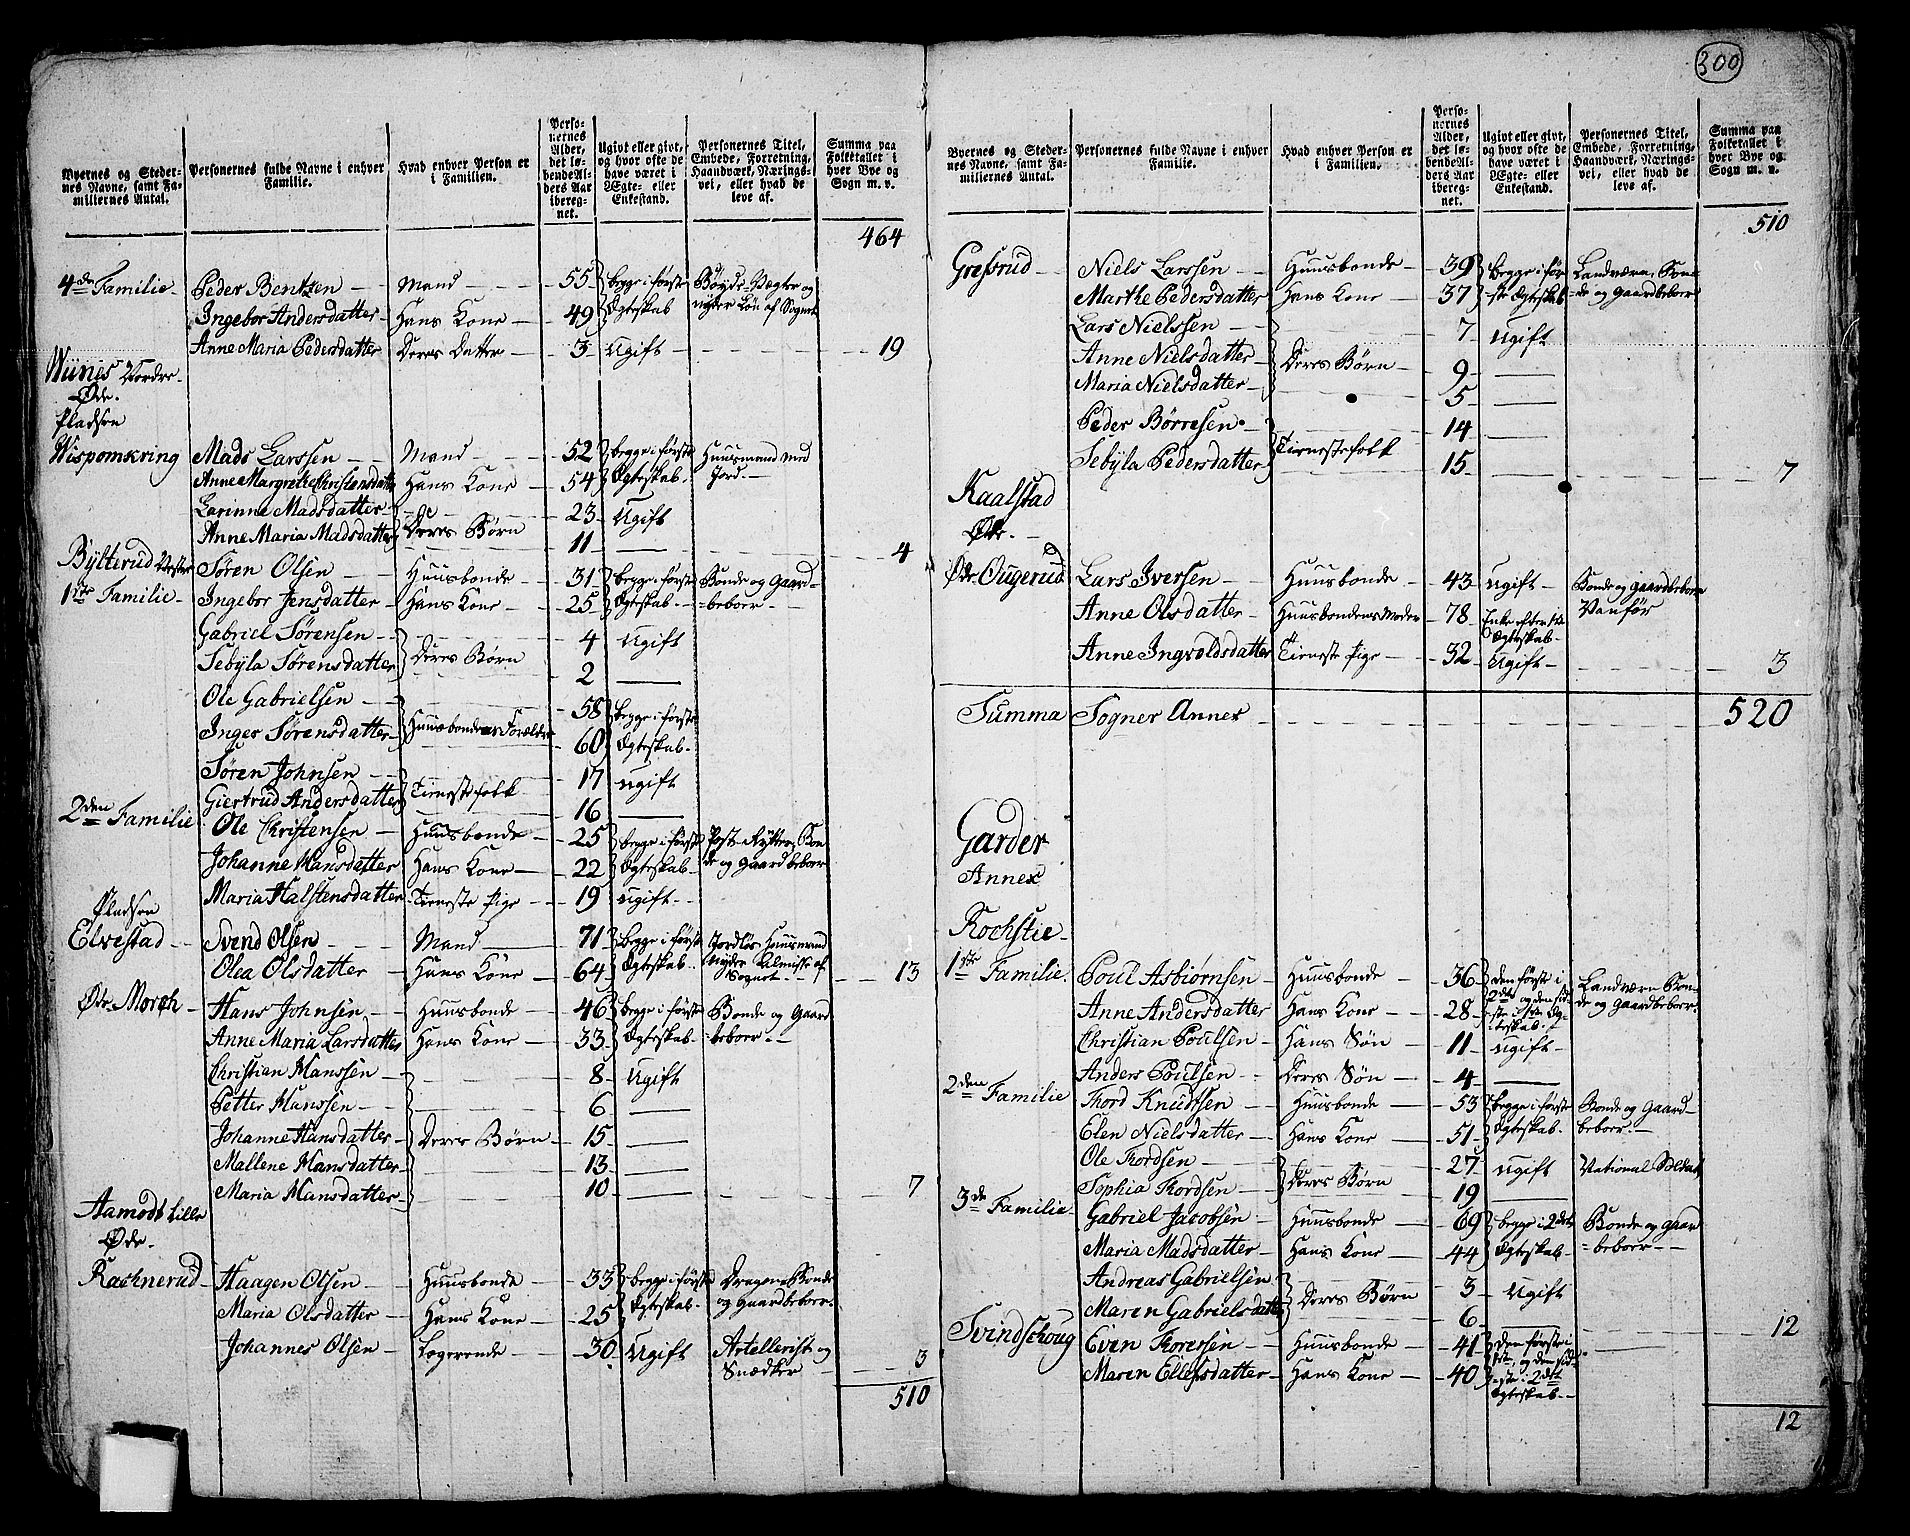 300
Byernes og Stedernes Navne, samt Familiernes Antal.
Personernes fulde Navne i enhver Familie.
Hvad enhver Person er i Familien.
Personernes Alder, det løbende Alders Aar iberegnet.
Ugivt eller givt, og hvor ofte de have været i Ægte- eller Enkestand.
Personernes Titel, Embede, Forretning, Haandværk, Næringsvei, eller hvad de leve af.
Summa paa Folketallet i hver Bye og Sogn m. v.
464
4de Familie Peder Bentzen Mand 55 begge i første Bøyde-Vegter og
Ingebor Andersdatter Hans Kone 49 Ægteskab nyder Løn af Sognet
Anne Maria Pedersdatter Deres Datter 3 Ugift 19
Wiines Nordre
Øde.
Pladsen
Wispomkring Mads Larssen Mand 52 begge i første Huusmand med
Anne Margrethe Christensdatt Hans Kone 54 Ægteskab Jord.
Larinne Madsdatter 23 Ugift
Anne Maria Madsdatter Deres Børn 11 4
Bylterud Vestre Søren Olsen Huusbonde 31 begge i første Bonde og Gaard
1ste Familie Ingebor Jensdatter Hans Kone 25 Ægteskab beboer
Gabriel Sørensen 4 Ugift
Sebyla Sørensdatter Deres Børn 2
Ole Gabrielsen 58 begge i første
Inger Sørensdatter Huusbondens Forældre 60 Ægteskab
Søren Johnsen 17 ugift
Giertrud Andersdatter Tienestefolk 16
2den Familie Ole Christensen Huusbonde 25 begge i første Post-Rytter, Bon
Johanne Hansdatter Hans Kone 22 Ægteskab de og Gaardbeboer
Maria Halstensdatter Tieneste Pige 19 ugift
Pladsen
Elvestad Svend Olsen Mand 71 begge i første Jordløs Huusmand
Olea Olsdatter Hans Kone 64 Ægteskab nyder Almisse af Sognet 13
Øde Morch Hans Johnsen Huusbonde 46 begge i første Bonde og Gaard
Anne Maria Larsdatter Hans Kone 33 Ægteskab beboer
Christian Hanssen 8 Ugift
Petter Hanssen 6
Johanne Hansdatter Deres Børn 15
Mallene Hansdatter 13
Maria Hansdatter 10 7
Aamodt Lille
Øde.
Rachnerud Haagen Olsen Huusbonde 33 begge i første Dragon Bonde
Maria Olsdatter Hans Kone 25 Ægteskab og Gaardbeboer
Johannes Olsen Logerende 30 Ugift Artellerist og
Snedker 3
510
Byernes og Stedernes Navne, samt Familiernes Antal.
Personernes fulde Navne i enhver Familie.
Hvad enhver Person er i Familien.
Personernes Alder, det løbende Alders Aar iberegnet.
Ugivt eller givt, og hvor ofte de have været i Ægte- eller Enkestand.
Personernes Titel, Embede, Forretning, Haandværk, Næringsvei, eller hvad de leve af.
Summa paa Folketallet i hver Bye og Sogn m. v.
510
Gresrud Niels Larssen Huusbonde 39 begge i før Landværn, Bon
Marthe Pedersdatter Hans Kone 37 ste Ægteskab de og Gaardbeboer
Lars Nielssen 7 ugift
Anne Nielsdatter Deres Børn 9
Maria Nielsdatter 5
Peder Børresen 14
Sebyla Pedersdatter Tienestefolk 15 7
Kaalstad
Øde.
Øde Ougerud Lars Iversen Huusbonde 43 ugift Bonde og gaardbeboer
Anne Olsdatter Huusbondens Moder 78 Enke efter 1te Ægteskab Vanfør
Anne Ingvoldsdatter Tieneste Pige 32 Ugift 3
Summa Sogner Annex 520
Garder
Annex
Kochstie
1ste Familie Poul Asbiørnsen Huusbonde 36 den første i Landværn Bon
Anne Andersdatter Hans Kone 28 2det og den sidste i 1ste Ægteskab de og Gaardbeboer
Christian Poulsen Hans Søn 11 ugift
Anders Poulsen Deres Søn 4
2den Familie Thord Knudtsen Huusbonde 53 begge i første Bonde og Gaard
Elen Nielsdatter Hans Kone 51 Ægteskab beboer
Ole Thordsen 27 ugift National Soldat
Sophia Thordsen Deres Børn 19
3de Familie Gabriel Jacobsen Huusbonde 69 begge i 2det Bonde og gaard
Maria Madsdatter Hans Kone 44 Ægteskab beboer
Andreas Gabrielsen 3 Ugift
Maren Gabrielsdatter Deres Børn 6 12
Svindschoug Even Thoresen Huusbonde 41 den første i
Maren Ellefsdatter Hans Kone 40 1ste, og den sidste i 2det Ægteskab
12